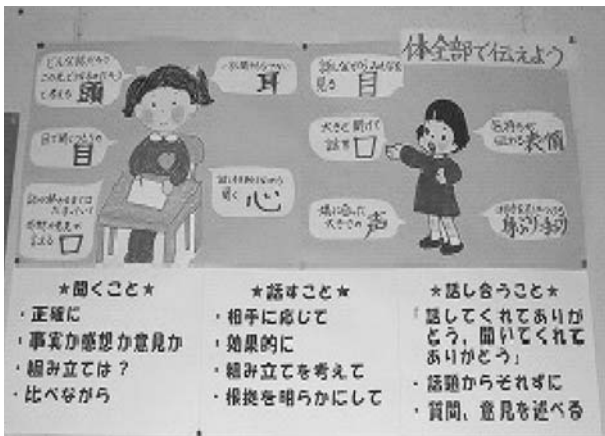 体全部で伝えよう
どんな話だろう?
と考える 頭
耳
目で聞くつもり
目
話し手を見ながら
聞く 心
口
話しながらみんなを
見る 目
大きく開けて
話す 口
場に合った
大きさの 声
気持ちが
伝わる 表情
身ぶり・手ぶり
★聞くこと★
・正確に
・事実か感想か意見か
・組み立ては?
・比べながら
★話すこと★
・相手に応じて
・効果的に
・組み立てを考えて
・根拠を明らかにして
★話し合うこと★
「話してくれてありが
とう、聞いてくれて
ありがとう」
・話題からそれずに
・質問、意見を述べる